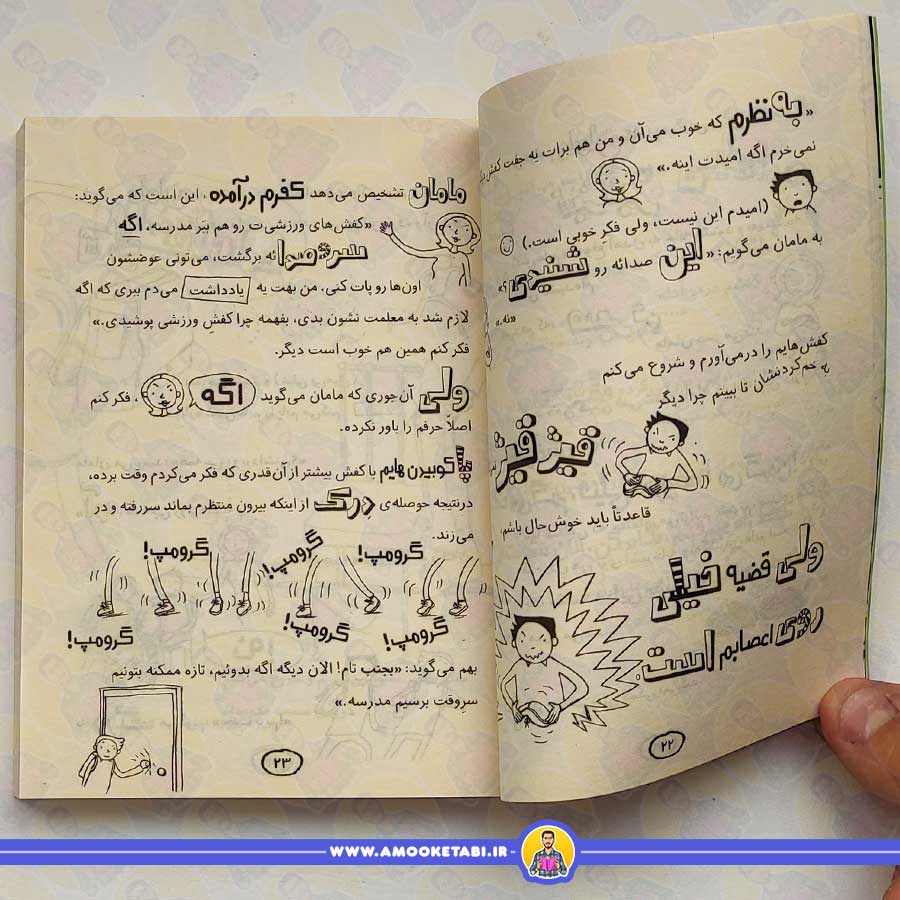 «به نظرم که خوب می‌آن و من هم برات یه جفت کفش
نمی‌خرم اگه امیدت اینه.»
(امیدم این نیست، ولی فکرِ خوبی است.)
به مامان می‌گویم: «این صدائه رو شنیدی؟»
«نه.»
کفش‌هایم را درمی‌آورم و شروع می‌کنم
به خم‌کردنشان تا ببینم چرا دیگر
قیژ قیژ
قاعدتاً باید خوش‌حال باشم،
ولی قضیه خیلی
روی اعصابم است.
۲۲
مامان تشخیص می‌دهد کفرم درآمده، این است که می‌گوید:
«کفش‌های ورزشی‌ت رو هم ببَر مدرسه، اگه
سر و صدائه برگشت، می‌تونی عوضشون
اون‌ها رو پات کنی. من بهت یه یادداشت می‌دم ببری که اگه
لازم شد به معلمت نشون بدی، بفهمه چرا کفش ورزشی پوشیدی.»
فکر کنم همین هم خوب است دیگر.
ولی آن‌جوری که مامان می‌گوید اگه، فکر کنم
اصلاً حرفم را باور نکرده.
پا کوبیدن هایم با کفش بیشتر از آن‌قدری که فکر می‌کردم وقت برده،
درنتیجه حوصله‌ی دِرِک از اینکه بیرون منتظرم بماند سررفته و در
می‌زند.
گرومپ!
گرومپ!
گرومپ!
گرومپ!
گرومپ!
گرومپ!
بهم می‌گوید: «بجنب تام! الان دیگه اگه بدوئیم، تازه ممکنه بتونیم
سرِوقت برسیم مدرسه.»
۲۳
WWW.AMOOKETABI.IR